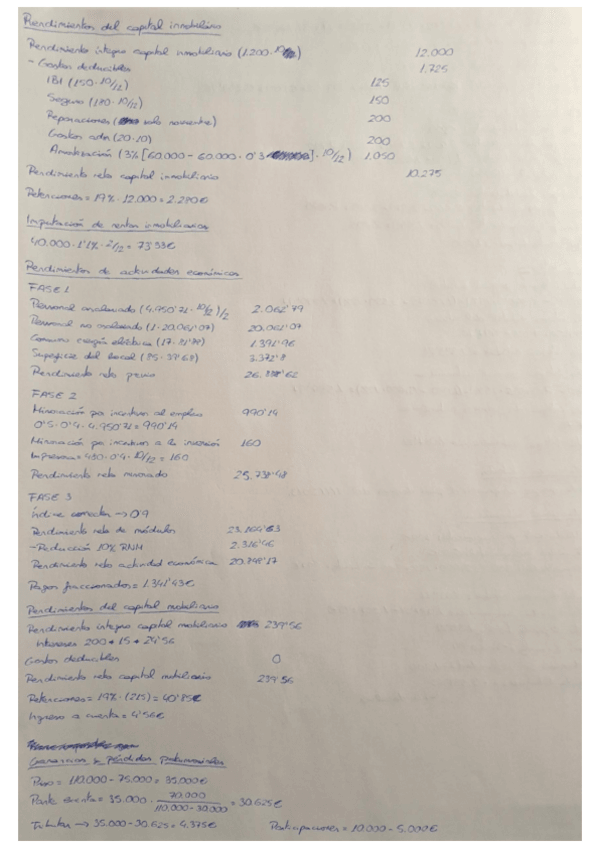 Rendimientos del capital inmobiliario
Rendimiento íntegro capital inmobiliario (1.200 · 10) 12.000
- Gastos deducibles 1.725
IBI (150 · 10/12) 125
Seguro (180 · 10/12) 150
Reparaciones (solo noviembre) 200
Gastos adm (20 · 10) 200
Amortización (3% [60.000 - 60.000 · 0'3] · 10/12) 1.050
Rendimiento neto capital inmobiliario 10.275
Retenciones = 19% · 12.000 = 2.280€
Imputación de rentas inmobiliarias
40.000 · 1'1% · 2/12 = 73'33€
Rendimientos de actividades económicas
FASE 1
Personal asalariado (4.950'71 · 10/12)/2 2.062'79
Personal no asalariado (1 · 20.061'07) 20.061'07
Consumo energía eléctrica (17 · 81'88) 1.391'96
Superficie del local (85 · 39'68) 3.372'8
Rendimiento neto previo 26.888'62
FASE 2
Minoración por incentivos al empleo 990'14
0'5 · 0'4 · 4.950'71 = 990'14
Minoración por incentivos a la inversión 160
Impresora = 480 · 0'4 · 10/12 = 160
Rendimiento neto minorado 25.738'48
FASE 3
Índice corrector → 0'9
Rendimiento neto de módulos 23.164'63
- Reducción 10% RNM 2.316'46
Rendimiento neto actividad económica 20.848'17
Pagos fraccionados = 1.341'43€
Rendimientos del capital mobiliario
Rendimiento íntegro capital mobiliario 239'56
Intereses 200 + 15 + 24'56
Gastos deducibles 0
Rendimiento neto capital mobiliario 239'56
Retenciones = 19% · (215) = 40'85€
Ingreso a cuenta = 4'56€
Ganancias y pérdidas patrimoniales
Piso = 110.000 - 75.000 = 35.000€
Parte exenta = 35.000 · 70.000 / 110.000 - 30.000 = 30.625€
Tributan → 35.000 - 30.625 = 4.375€ Participaciones = 10.000 - 5.000€